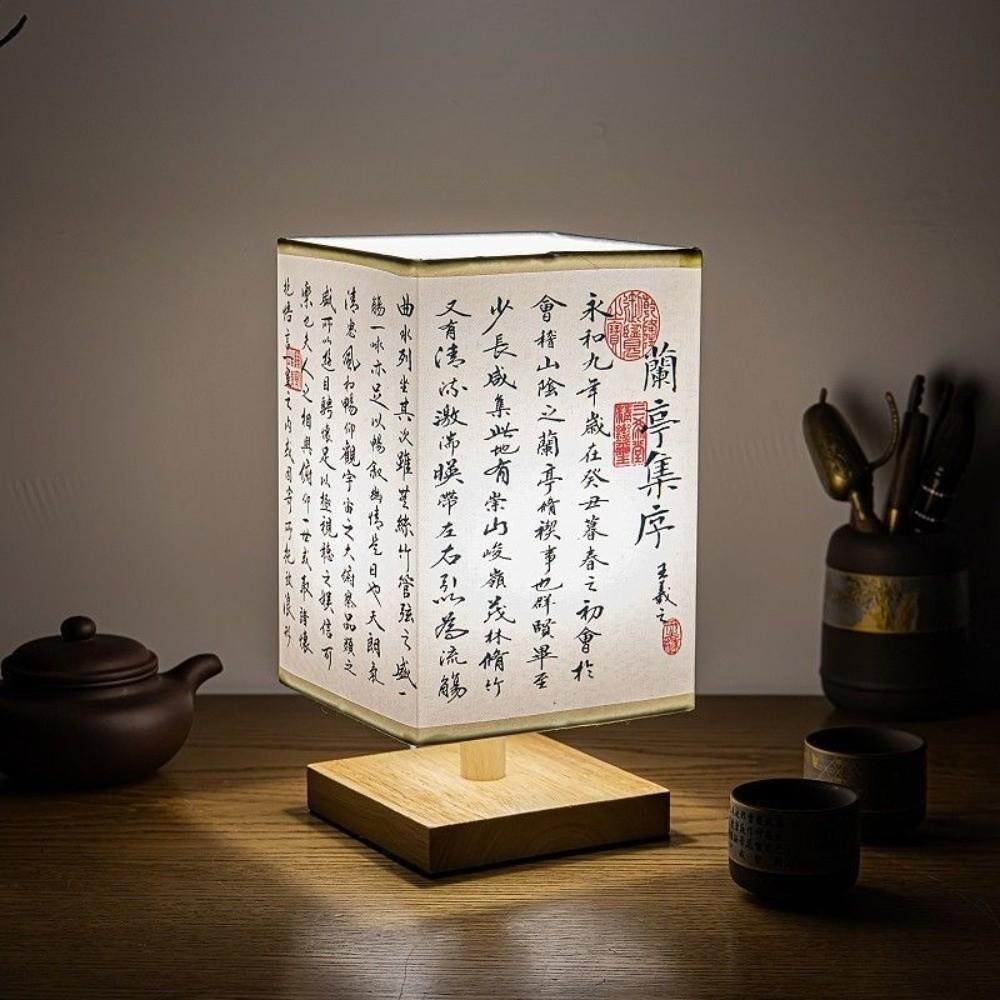 蘭亭集序
王羲之
永和九年歲在癸丑暮春之初會於
會稽山陰之蘭亭脩禊事也群賢畢至
少長咸集此地有崇山峻嶺茂林脩竹
又有清流激湍暎帶左右引以為流觴
曲水列坐其次雖無絲竹管弦之盛一
觴一詠亦足以暢叙幽情是日也天朗氣
清惠風和暢仰觀宇宙之大俯察品類之
盛所以遊目騁懷足以極視聽之娛信可
樂也夫人之相與俯仰一世或取諸懷
抱悟言一室之內或因寄所託放浪形